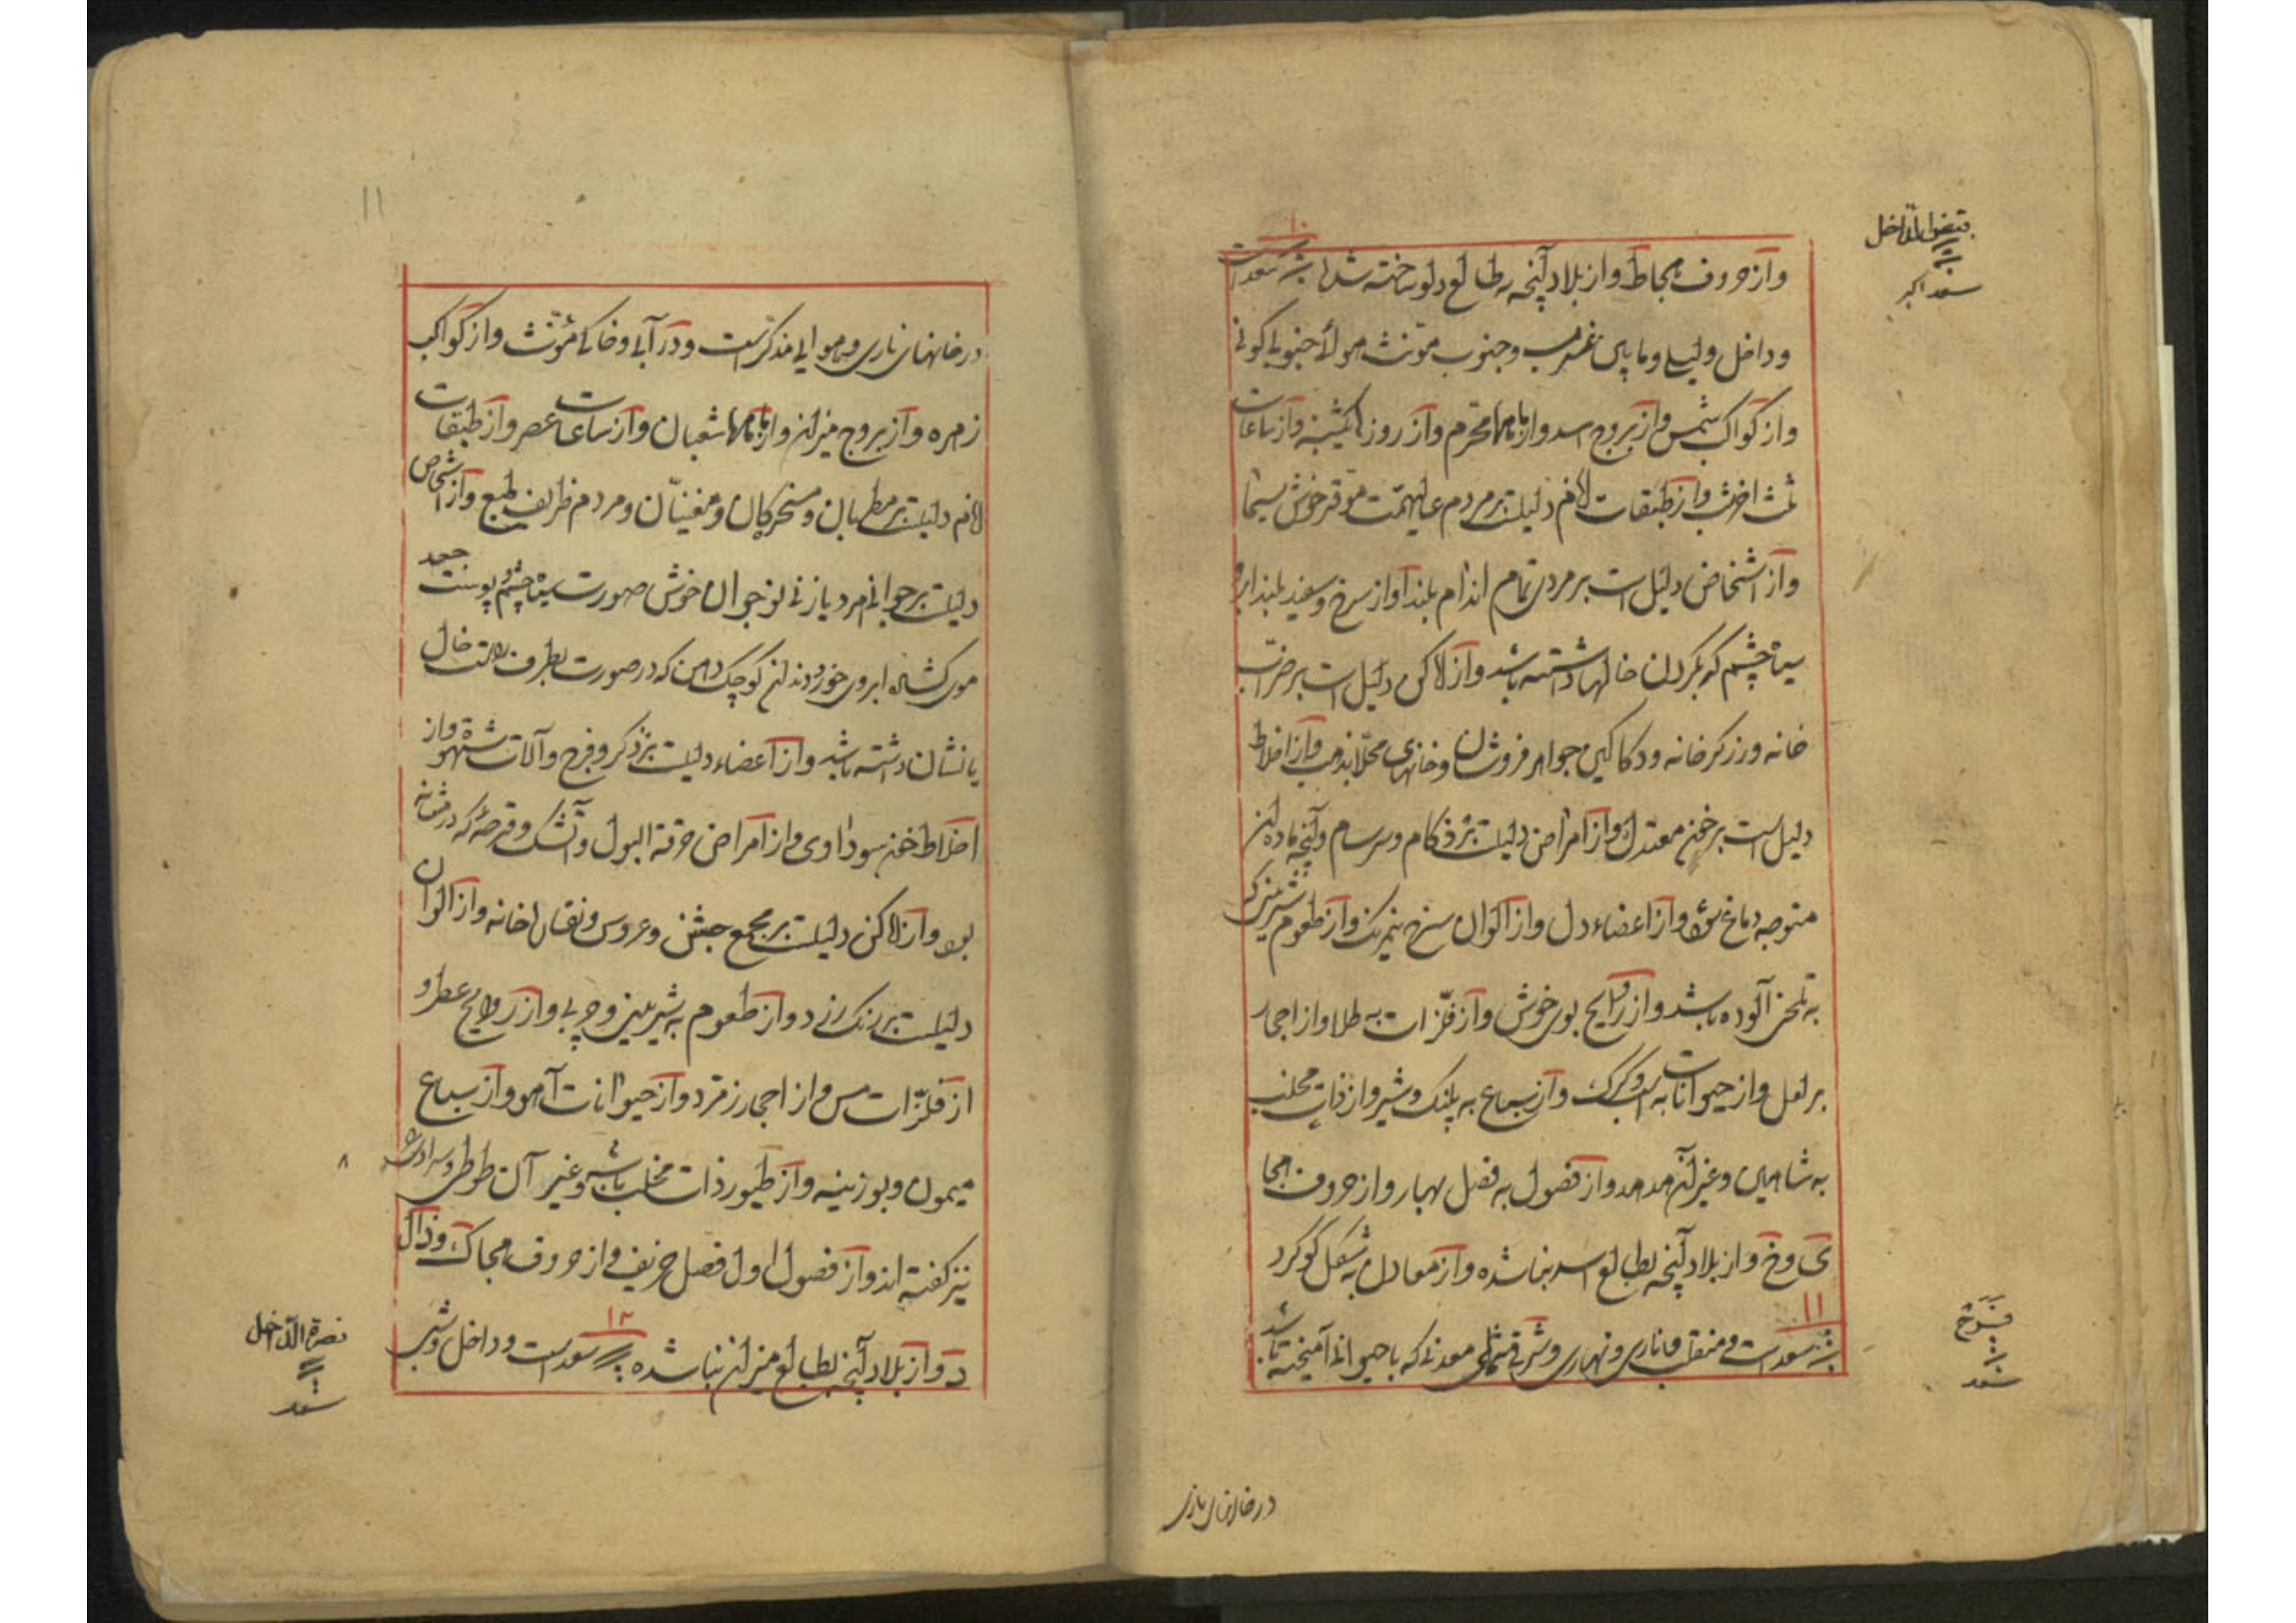 قبض الداخل
سعد اکبر
۱۰
واز حروف بجا ط واز بلاد آنچه به طالع دلو ساخته شده سعد است
و داخل و لیلی و غرب و جنوب مؤنث
واز کواکب شمس واز بروج اسد واز ماهها محرم واز روزها یکشنبه واز ساعات
واز طبقات لانام دلیلست بر مردم عالیهمت موقر خوش سیما
واز اشخاص دلیل است بر مردی تمام اندام بلند آواز سرخ و سفید بلند ابرو
سیاه چشم که بر گردن خالها داشته باشد واز لاکن دلیل است بر ضراب
خانه و زرگر خانه و دکاکین جواهر فروشان و خانهای محلا بذهب واز اخلاط
دلیل است بر خون معتدل واز امراض دلیلست بر زکام و سرسام و آنچه ماده آن
متوجه دماغ بود واز اعضاء دل واز الوان سرخ نیمرنگ واز طعوم شیرینی که
به تلخی آلوده باشد واز روایح بوی خوش واز فلزات به طلا واز احجار
بر لعل واز حیوانات به واز سباع به پلنک و شیر واز ذات مخلب
به شاهین و غیر آن هدهد واز فصول به فصل بهار واز حروف هجا
ی و خ واز بلاد آنچه بطالع اسد بنا شده واز معادن به شکل گوگرد
۱۱
سعد است و منقلب و ناری و نهاری و شرقی معدنی که با حیوانی آمیخته باشد
فرح
سعد
در خانهای ناری
۱۱
در خانهای ناری و هوایی مذکر است و در آبی و خاکی مؤنث واز کواکب
زهره واز بروج میزان واز ماهها شعبان واز ساعات عصر واز طبقات
لانام دلیلست بر مطربان و مسخرکان و مغنیان و مردم ظریف طبع واز اشخاص
دلیلست بر جوانی مرد یا زنی نوجوان خوش صورت سیاه چشم پیوست جعد
موی کشاده ابروی خورد دندان کوچک دهن که در صورت بطرف راست خال
یا نشان داشته باشد واز اعضاء دلیلست بر ذکر و فرج و آلات شهوة واز
اخلاط خون سوداوی واز امراض حرقة البول و آتشک و قرحه که در مثانه
بود واز لاکن دلیلست بر مجمع جشن و عروسی و نقار خانه واز الوان
دلیلست بر رنگ زرد واز طعوم به شیرینی و چربی واز روایح عطر و
از فلزات مس واز احجار زمرد واز حیوانات آهو واز سباع
میمون و بوزینه واز طیور ذات مخلب باشه و غیر آن طوطی
نیز گفته اند واز فصول اول فصل خریف واز حروف هجا ک و ذال
۱۲
د واز بلاد آنچه بطالع میزان بنا شده سعد است و داخل و شبی
۸
نصرة الداخل
سعد